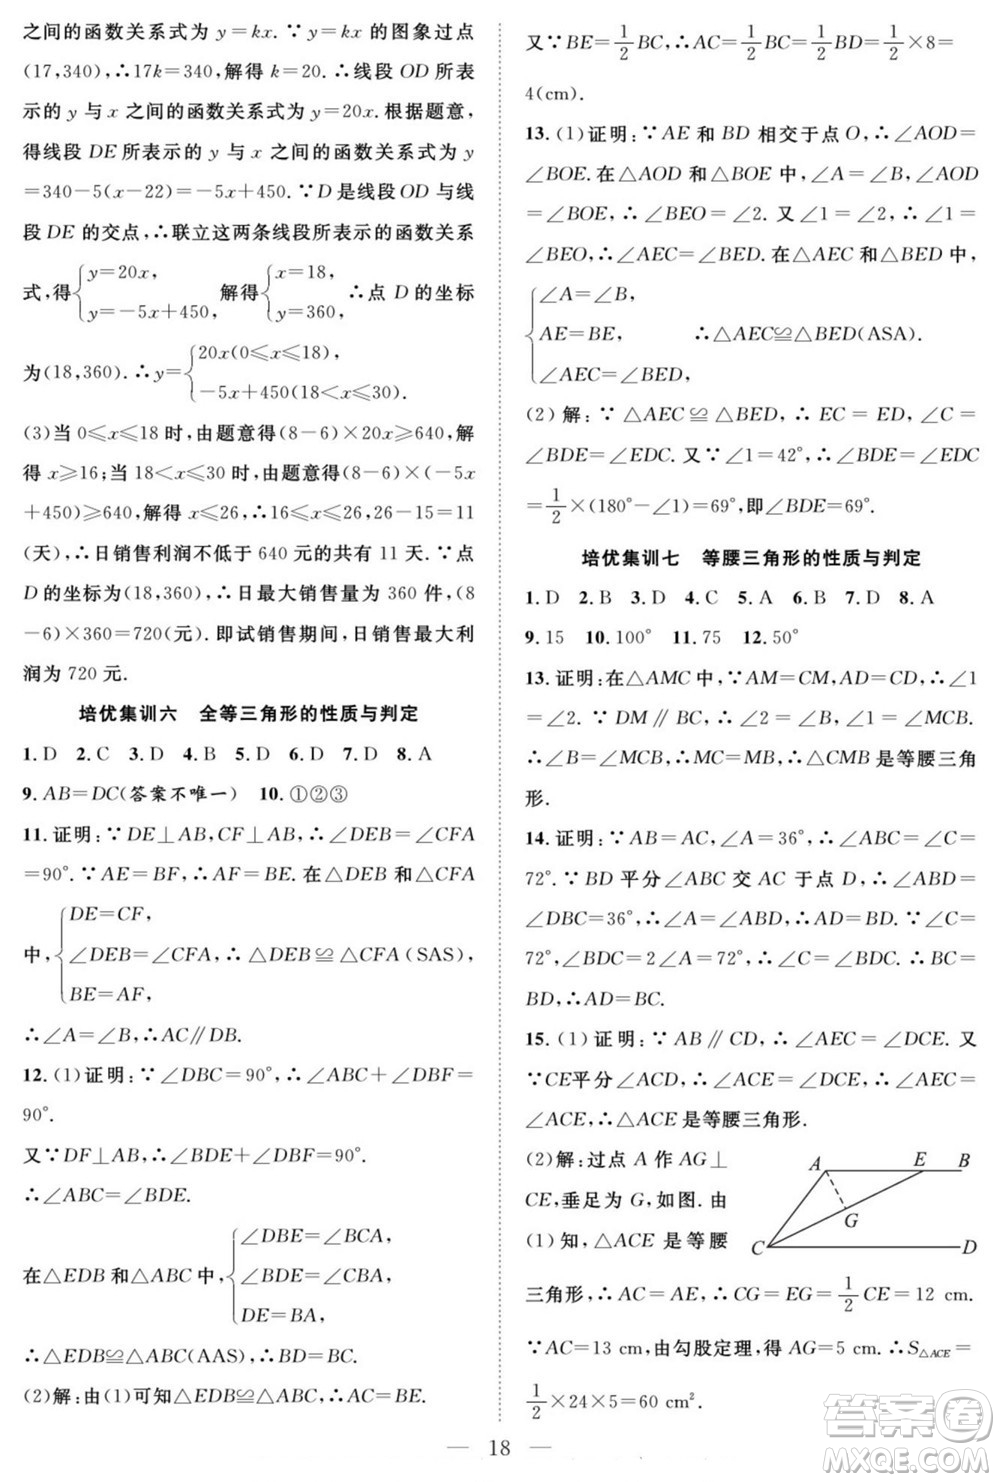 之间的函数关系式为 y=kx. ∵y=kx 的图象过点
(17,340),∴17k=340,解得 k=20. ∴线段 OD 所表
示的 y 与 x 之间的函数关系式为 y=20x. 根据题意,
得线段 DE 所表示的 y 与 x 之间的函数关系式为 y
=340-5(x-22)=-5x+450. ∵D 是线段 OD 与线
段 DE 的交点,∴联立这两条线段所表示的函数关系
式,得{y=20x, y=-5x+450, 解得{x=18, y=360, ∴点 D 的坐标
为(18,360). ∴y={20x(0≤x≤18), -5x+450(18<x≤30).
(3)当 0≤x≤18 时,由题意得(8-6)×20x≥640,解
得 x≥16;当 18<x≤30 时,由题意得(8-6)×(-5x
+450)≥640,解得 x≤26,∴16≤x≤26,26-15=11
(天),∴日销售利润不低于 640 元的共有 11 天. ∵点
D 的坐标为(18,360),∴日最大销售量为 360 件,(8
-6)×360=720(元). 即试销售期间,日销售最大利
润为 720 元.
培优集训六 全等三角形的性质与判定
1. D 2. C 3. D 4. B 5. D 6. D 7. D 8. A
9. AB=DC(答案不唯一) 10. ①②③
11. 证明:∵DE⊥AB,CF⊥AB,∴∠DEB=∠CFA
=90°. ∵AE=BF,∴AF=BE. 在△DEB 和△CFA
中,{DE=CF, ∠DEB=∠CFA, BE=AF, ∴△DEB≌△CFA(SAS),
∴∠A=∠B,∴AC∥DB.
12. (1)证明:∵∠DBC=90°,∴∠ABC+∠DBF=
90°.
又∵DF⊥AB,∴∠BDE+∠DBF=90°.
∴∠ABC=∠BDE.
在△EDB 和△ABC 中,{∠DBE=∠BCA, ∠BDE=∠CBA, DE=BA,
∴△EDB≌△ABC(AAS).
(2)解:由(1)可知△EDB≌△ABC,∴AC=BE.
又∵BE=1/2 BC,∴AC=1/2 BC=1/2 BD=1/2×8=
4(cm).
13. (1)证明:∵AE 和 BD 相交于点 O,∴∠AOD=
∠BOE. 在△AOD 和△BOE 中,∠A=∠B,∠AOD
=∠BOE,∴∠BEO=∠2. 又∵∠1=∠2,∴∠1=
∠BEO,∴∠AEC=∠BED. 在△AEC 和△BED 中,
{∠A=∠B, AE=BE, ∠AEC=∠BED, ∴△AEC≌△BED(ASA).
(2)解:∵△AEC≌△BED,∴EC=ED,∠C=
∠BDE=∠EDC. 又∵∠1=42°,∴∠BDE=∠EDC
=1/2×(180°-∠1)=69°,即∠BDE=69°.
培优集训七 等腰三角形的性质与判定
1. D 2. B 3. D 4. C 5. A 6. B 7. D 8. A
9. 15 10. 100° 11. 75 12. 50°
13. 证明:在△AMC 中,∵AM=CM,AD=CD,∴∠1
=∠2. ∵DM∥BC,∴∠1=∠B,∠2=∠MCB.
∴∠B=∠MCB,∴MC=MB,∴△CMB 是等腰三角
形.
14. 证明:∵AB=AC,∠A=36°,∴∠ABC=∠C=
72°. ∵BD 平分∠ABC 交 AC 于点 D,∴∠ABD=
∠DBC=36°,∴∠A=∠ABD,∴AD=BD. ∵∠C=
72°,∠BDC=2∠A=72°,∴∠BDC=∠C. ∴BC=
BD,∴AD=BC.
15. (1)证明:∵AB∥CD,∴∠AEC=∠DCE. 又
∵CE平分∠ACD,∴∠ACE=∠DCE,∴∠AEC=
∠ACE,∴△ACE 是等腰三角形.
(2)解:过点 A 作 AG⊥
CE,垂足为 G,如图. 由
(1)知,△ACE 是等腰
三角形,∴AC=AE,∴CG=EG=1/2 CE=12 cm.
∵AC=13 cm,由勾股定理,得 AG=5 cm,∴S△ACE=
1/2×24×5=60 cm².
A E B
G
C D
18
答案圈
MXQE.COM